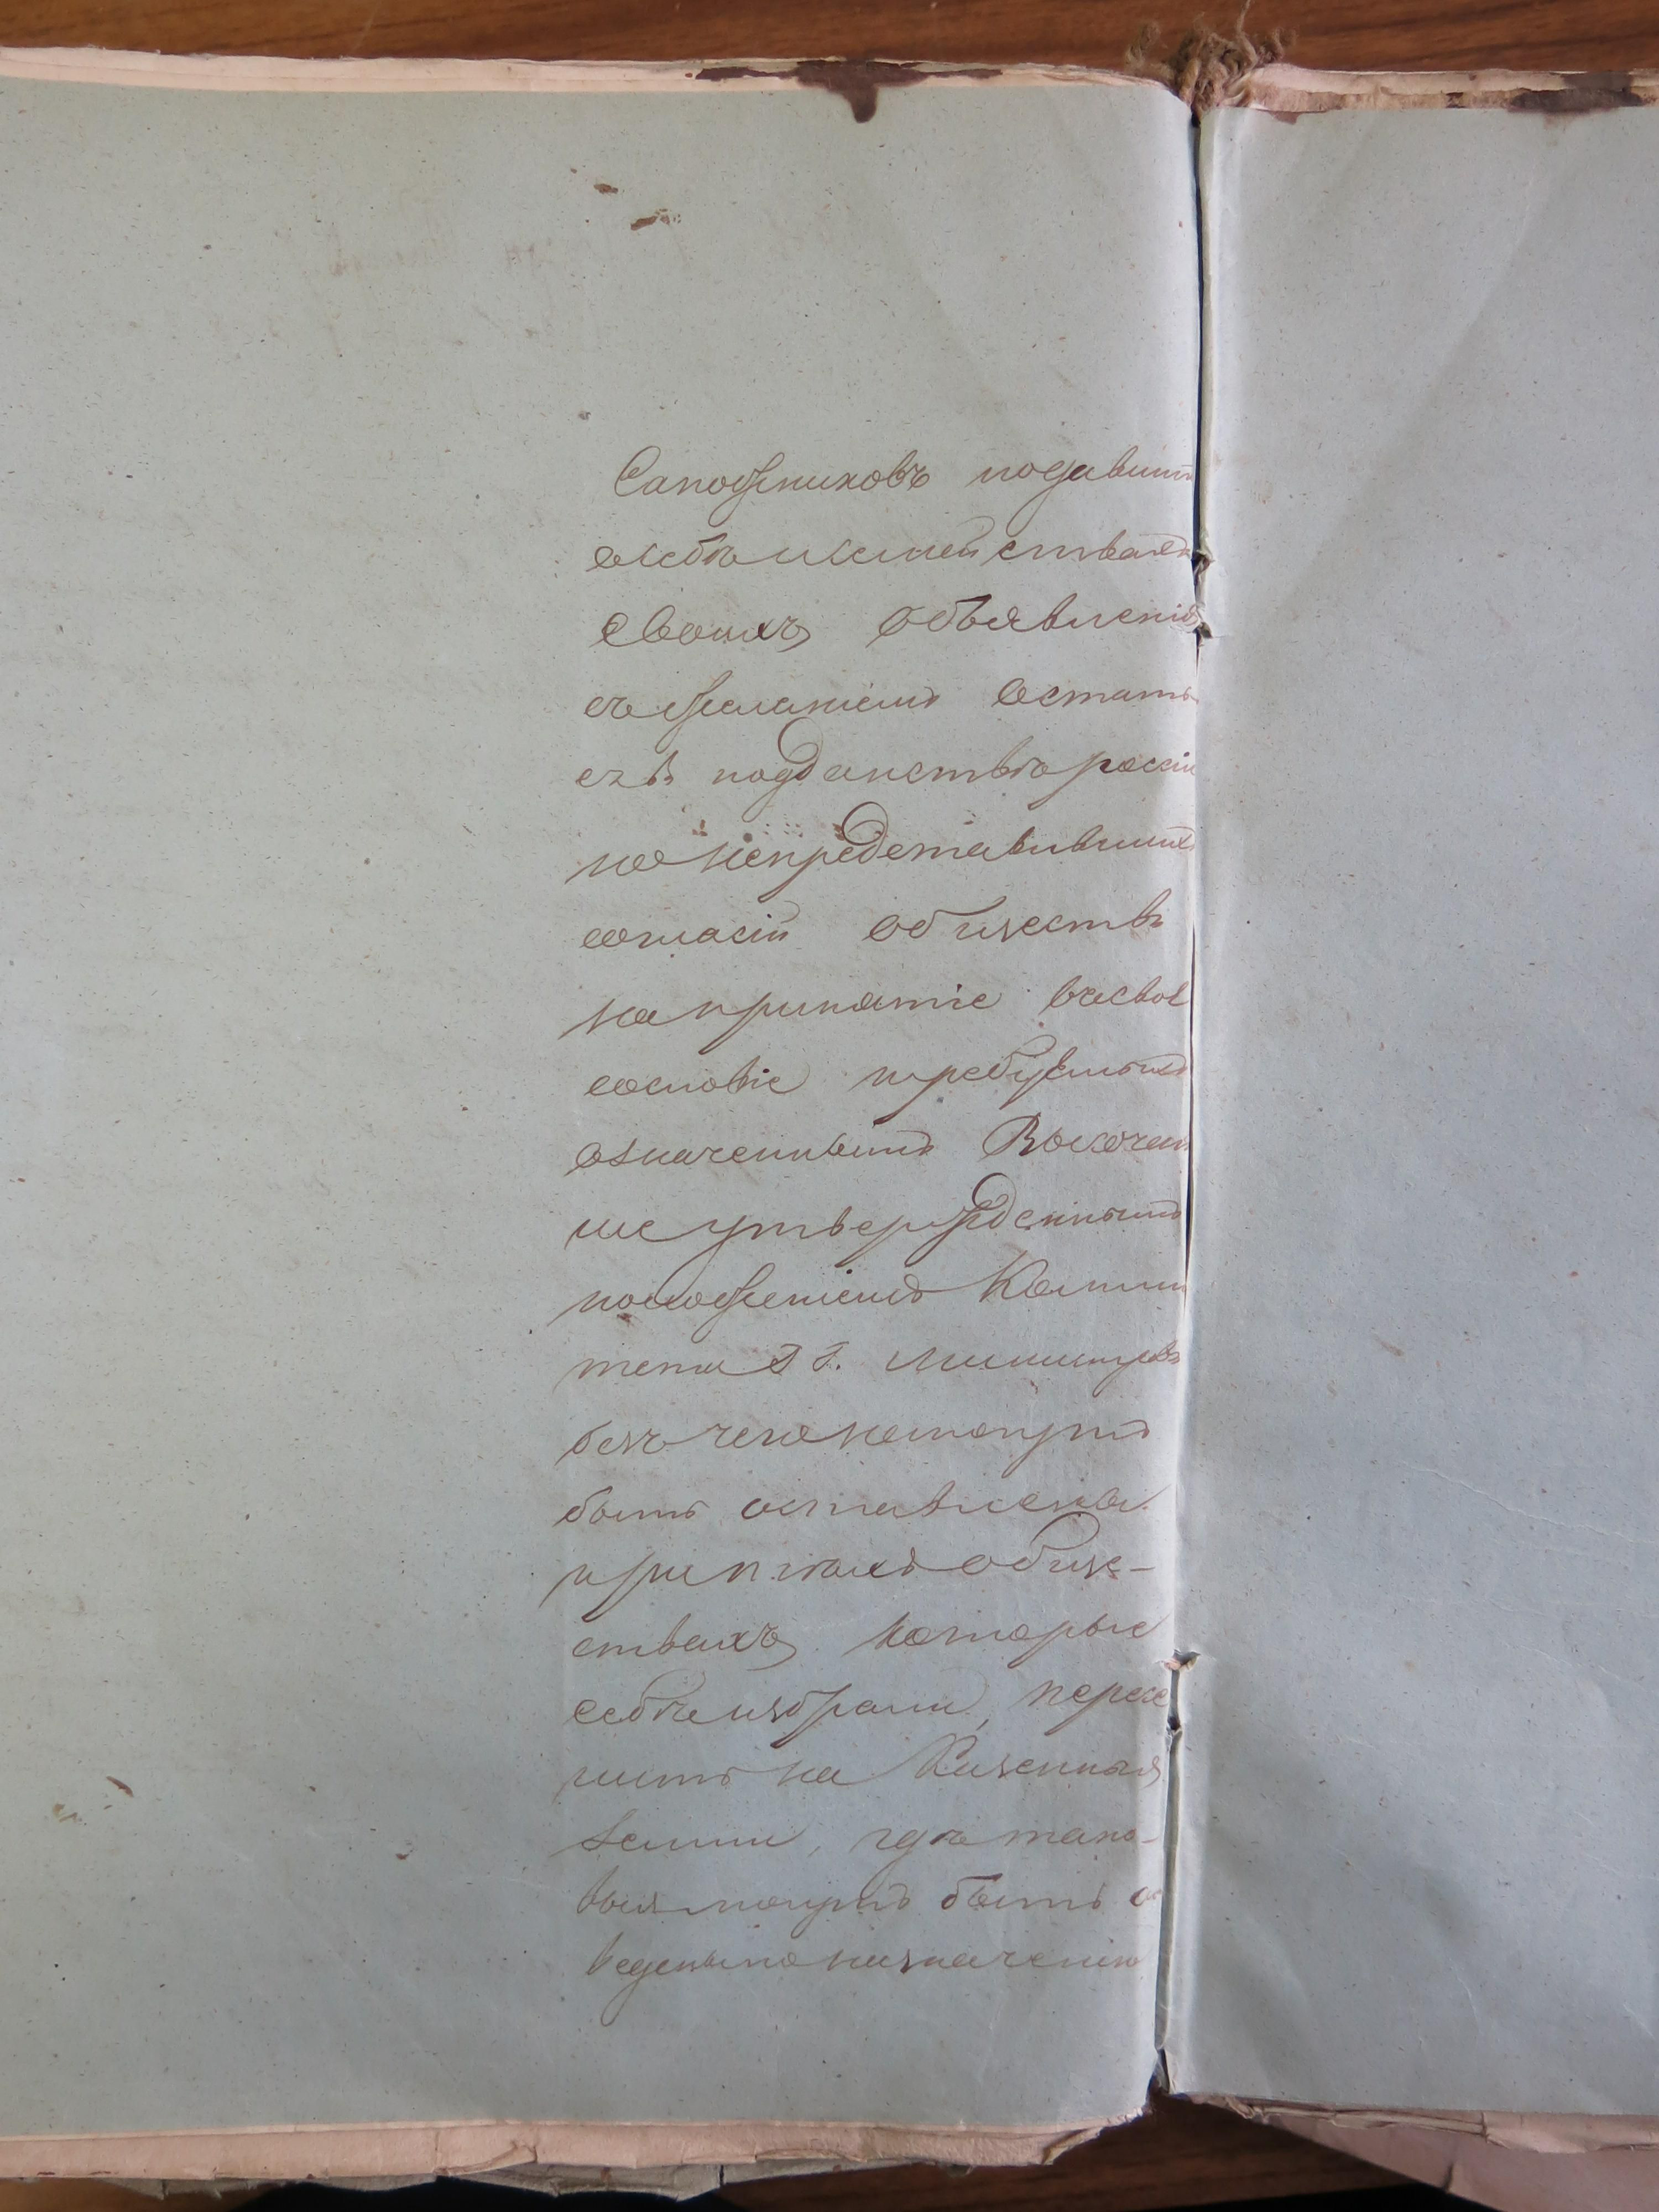 Сапожниковъ подавшихъ
о себѣ и семействахъ
своихъ объявленія
съ желаніемъ остать
ся въ подданствѣ россіи
но непредставившихъ
согласій обществъ
на принятіе въ свое
сословіе требуемыхъ
означеннымъ Высочай
ше утвержденнымъ
положеніемъ Коми
тета ГГ. Министровъ
безъ чего не могутъ
быть оставлены
при тѣхъ обще-
ствахъ которые
себѣ избрали, пересе
лить на Казенныя
земли, гдѣ тако-
выя могутъ быть о
ведены по назначенію